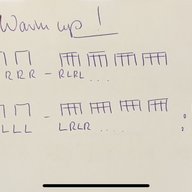 Warm up!
R R R - R L R L ...
L L L - L R L R ....